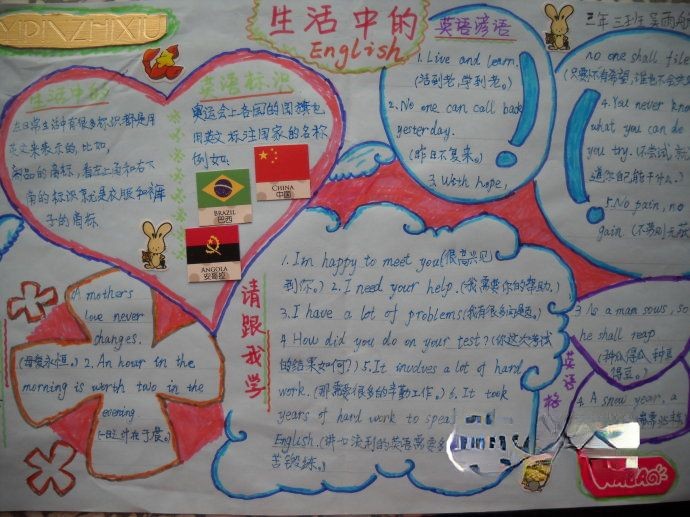 YIPINZHIXIU
生活中的
English
英语谚语
1. Live and learn.
(活到老,学到老。)
2. No one can call back
yesterday.
(昨日不复来。)
3. With hope,
no one shall
(只要不有希望,谁也不会
4. You never know
what you can do
you try. (不尝试,
道你自己能干什么。)
5. No pain, no
gain. (不劳则无获
生活中的
在日常生活中有很多标识都是用
英文来表示的,比如,
商品的商标,看左上角和右下
角的标识就是衣服和裤
子的商标
英语标识
奥运会上各国的国旗也
用英文标注国家的名称
例如:
CHINA
中国
BRAZIL
巴西
ANGOLA
安哥拉
请跟我学
1. I'm happy to meet you(很高兴见
到你。) 2. I need your help.(我需要你的帮助。)
3. I have a lot of problems(我有很多问题。)
4. How did you do on your test?(你这次考试
的结果如何?) 5. It involves a lot of hard
work. (那需要很多的辛勤工作。) 6. It took
years of hard work to speak
English. (讲一口流利的英语需要多
苦锻练。)
A mothers
love never
changes.
(母爱永恒。) 2. An hour in the
morning is worth two in the
evening
(一日之计在于晨。)
英语
格
3 As a man sows, so
he shall reap
(种瓜得瓜,种豆
得豆。)
4. A snow year, a